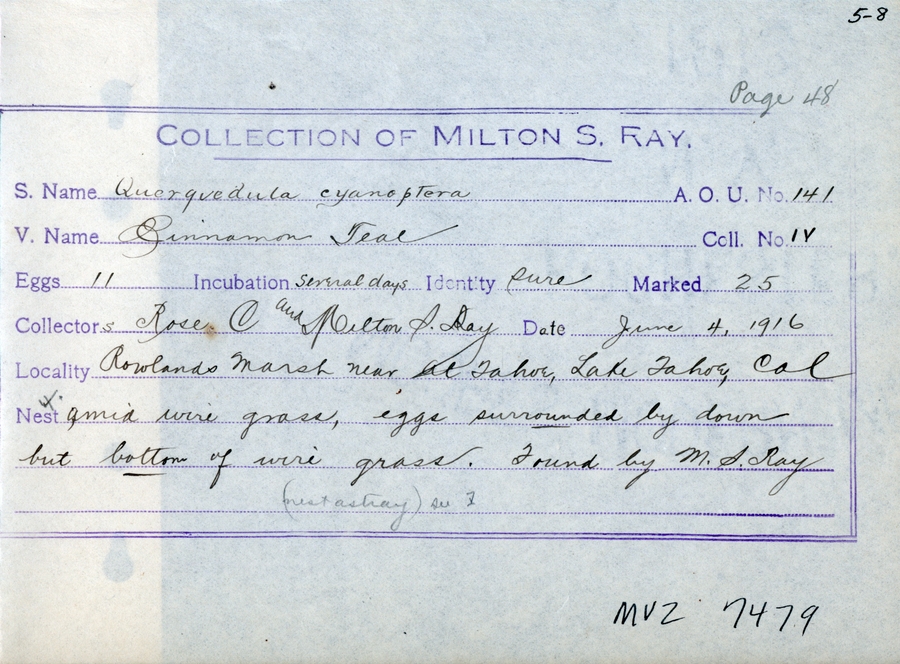 5-8
Page 48
COLLECTION OF MILTON S. RAY.
S. Name Querquedula cyanoptera A. O. U. No. 141
V. Name Cinnamon Teal Coll. No. IV
Eggs 11 Incubation several days Identity pure Marked 25
Collectors Rose C and Milton S. Ray Date June 4, 1916
Locality Rowlands Marsh near at Tahoe, Lake Tahoe, Cal
Nest amid wire grass, eggs surrounded by down
but bottom of wire grass. Found by M. S. Ray
(nest astray)
MVZ 7479